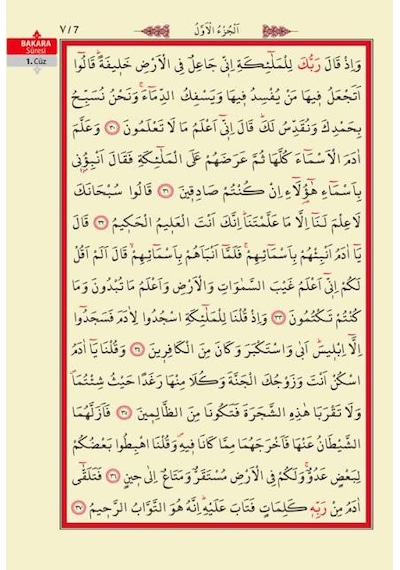 ٧/7
اَلْجُزْءُ الْاَوَّلُ
BAKARA
Sûresi
1. Cüz
وَاِذْ قَالَ رَبُّكَ لِلْمَلٰٓئِكَةِ اِنّ۪ي جَاعِلٌ فِي الْاَرْضِ خَل۪يفَةًۜ قَالُٓوا
اَتَجْعَلُ ف۪يهَا مَنْ يُفْسِدُ ف۪يهَا وَيَسْفِكُ الدِّمَٓاءَۚ وَنَحْنُ نُسَبِّحُ
بِحَمْدِكَ وَنُقَدِّسُ لَكَۜ قَالَ اِنّ۪ٓي اَعْلَمُ مَا لَا تَعْلَمُونَ ﴿٣٠﴾ وَعَلَّمَ
اٰدَمَ الْاَسْمَٓاءَ كُلَّهَا ثُمَّ عَرَضَهُمْ عَلَى الْمَلٰٓئِكَةِ فَقَالَ اَنْبِؤُ۫ن۪ي
بِاَسْمَٓاءِ هٰٓؤُ۬لَٓاءِ اِنْ كُنْتُمْ صَادِق۪ينَ ﴿٣١﴾ قَالُوا سُبْحَانَكَ
لَا عِلْمَ لَنَٓا اِلَّا مَا عَلَّمْتَنَاۜ اِنَّكَ اَنْتَ الْعَل۪يمُ الْحَك۪يمُ ﴿٣٢﴾ قَالَ
يَٓا اٰدَمُ اَنْبِئْهُمْ بِاَسْمَٓائِهِمْۚ فَلَمَّٓا اَنْبَاَهُمْ بِاَسْمَٓائِهِمْۙ قَالَ اَلَمْ اَقُلْ
لَكُمْ اِنّ۪ٓي اَعْلَمُ غَيْبَ السَّمٰوَاتِ وَالْاَرْضِۙ وَاَعْلَمُ مَا تُبْدُونَ وَمَا
كُنْتُمْ تَكْتُمُونَ ﴿٣٣﴾ وَاِذْ قُلْنَا لِلْمَلٰٓئِكَةِ اسْجُدُوا لِاٰدَمَ فَسَجَدُٓوا
اِلَّٓا اِبْل۪يسَۜ اَبٰى وَاسْتَكْبَرَ وَكَانَ مِنَ الْكَافِر۪ينَ ﴿٣٤﴾ وَقُلْنَا يَٓا اٰدَمُ
اسْكُنْ اَنْتَ وَزَوْجُكَ الْجَنَّةَ وَكُلَا مِنْهَا رَغَدًا حَيْثُ شِئْتُمَاۖ
وَلَا تَقْرَبَا هٰذِهِ الشَّجَرَةَ فَتَكُونَا مِنَ الظَّالِم۪ينَ ﴿٣٥﴾ فَاَزَلَّهُمَا
الشَّيْطَانُ عَنْهَا فَاَخْرَجَهُمَا مِمَّا كَانَا ف۪يهِۖ وَقُلْنَا اهْبِطُوا بَعْضُكُمْ
لِبَعْضٍ عَدُوٌّۚ وَلَكُمْ فِي الْاَرْضِ مُسْتَقَرٌّ وَمَتَاعٌ اِلٰى ح۪ينٍ ﴿٣٦﴾ فَتَلَقّٰٓى
اٰدَمُ مِنْ رَبِّه۪ كَلِمَاتٍ فَتَابَ عَلَيْهِۜ اِنَّهُ هُوَ التَّوَّابُ الرَّح۪يمُ ﴿٣٧﴾